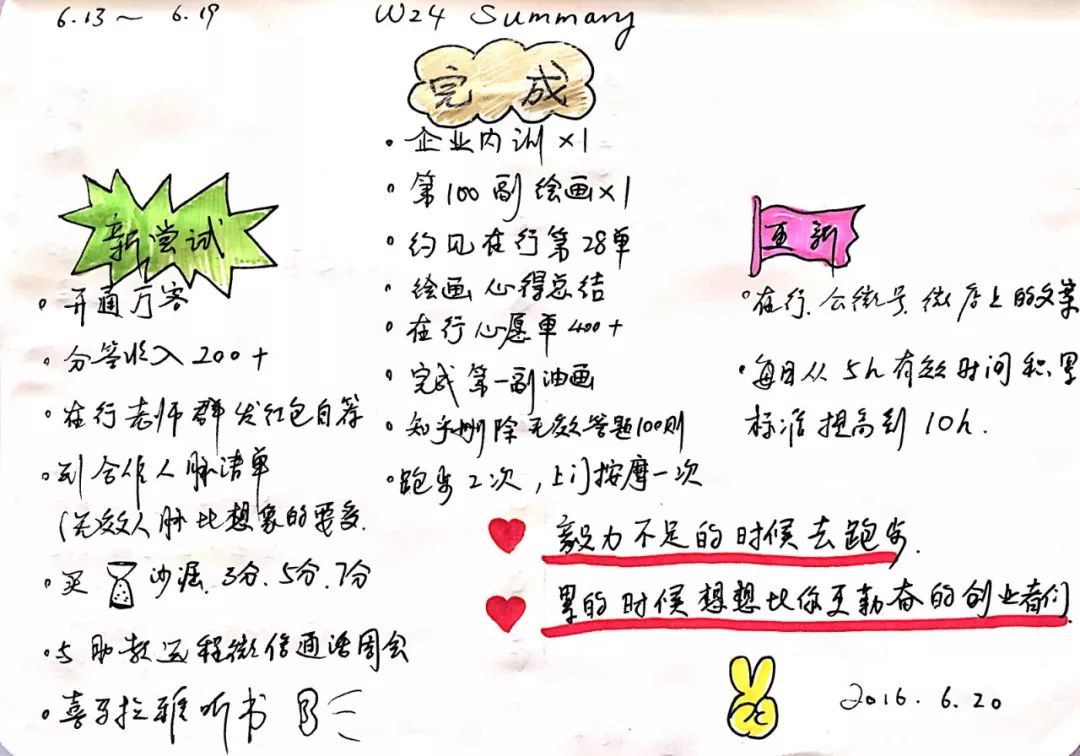 6.13～ 6.19
W24 Summary
完成
• 企业内训 ×1
• 第100副绘画×1
• 约见在行第28单
• 绘画心得总结
• 在行心愿单400+
• 完成第一副油画
• 知乎删除无效答题100则
• 跑步2次，上门按摩一次
新尝试
• 开通万客
• 分答收入200+
• 在行老师群发红包自荐
• 列合作人脉清单
(无效人脉比想象的要多.
• 买 沙漏.3分.5分.7分
• 与助教远程微信通语周会
• 喜马拉雅听书
更新
• 在行.公微号.微店上的文案
• 每日从5h有效时间积累
标准提高到10h.
毅力不足的时候去跑步.
累的时候想想比你更勤奋的创业者们
2016.6.20